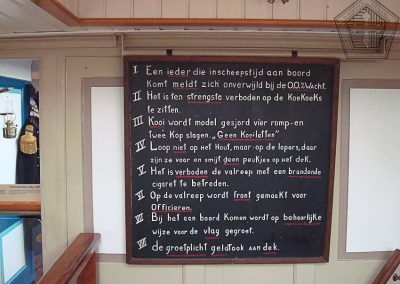 I Een ieder die inscheepstijd aan boord
komt meldt zich onverwijld bij de O.O.v/Wacht.
II Het is ten strengste verboden op de KoeKoeKs
te zitten.
III Kooi wordt model gesjord vier romp-en
twee Kop slagen. "Geen Kooiletten"
IV Loop niet op het Hout, maar op de lopers, daar
zijn ze voor en smijt geen peukjes op het deK.
V Het is verboden de valreep met een brandende
cigaret te betreden.
VI Op de valreep wordt front gemaakt voor
Officieren.
VII Bij het aan boord Komen wordt op behoorlijke
wijze voor de vlag gegroet.
VIII de groetplicht geldt ook aan dek.